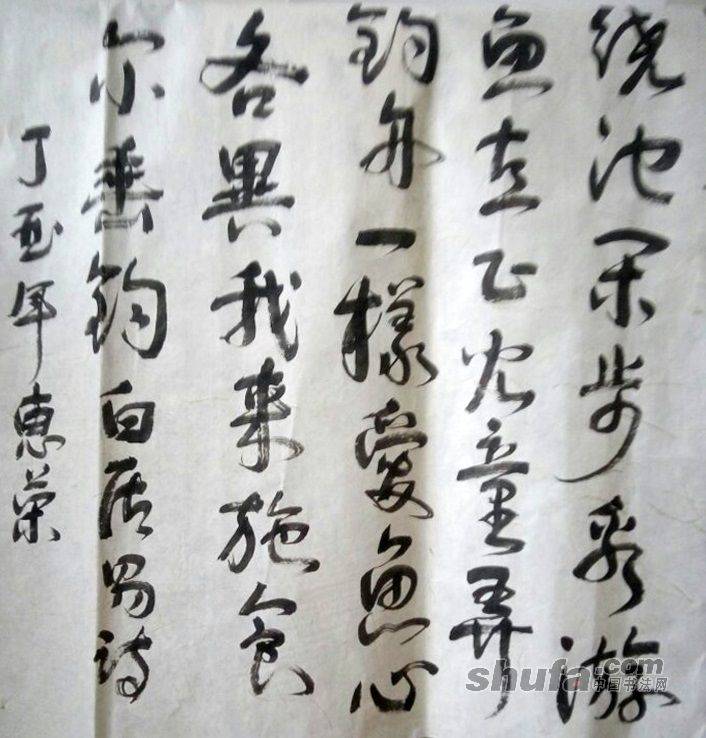 绕池闲步看游
鱼直正儿童弄
钓舟一樣愛鱼心
各異我来施食
尔垂钩白居易诗
丁酉年惠荣
shufa.com
中国书法网